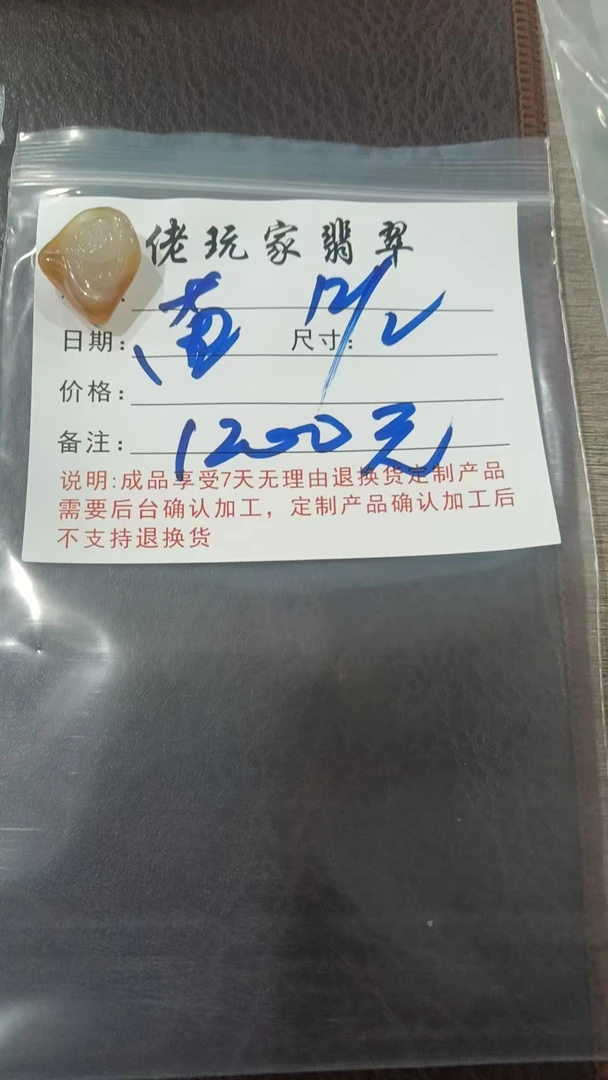 佬玩家翡翠
12/2
日期： 尺寸：
价格：
备注： 1200元
说明:成品享受7天无理由退换货定制产品
需要后台确认加工，定制产品确认加工后
不支持退换货